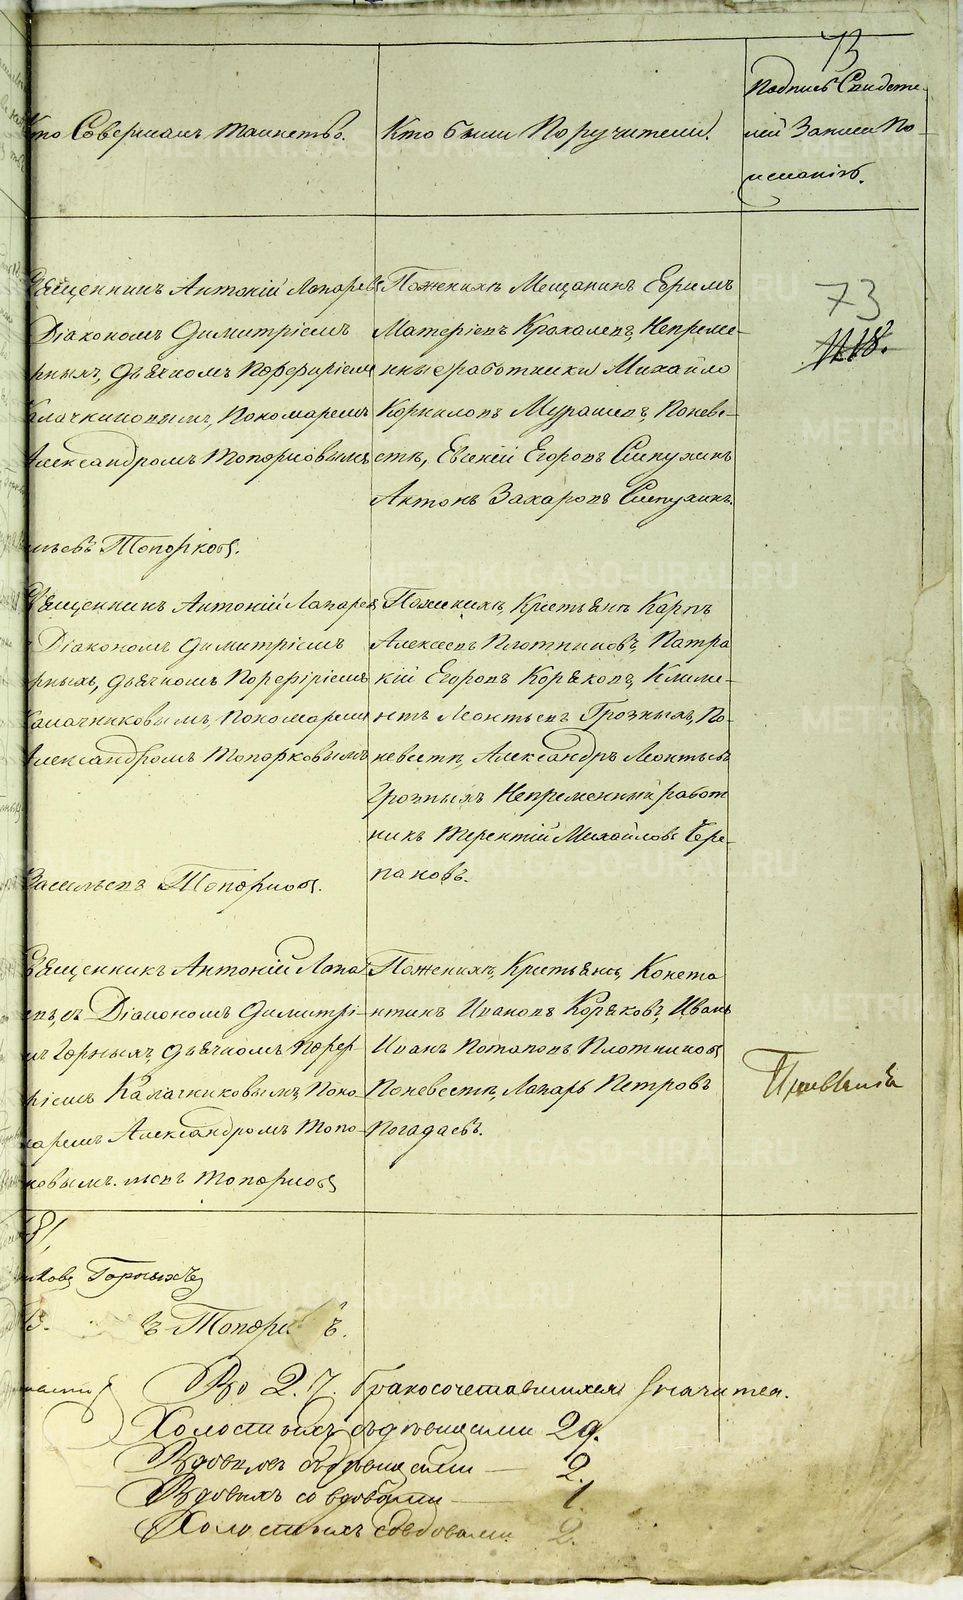 73
Кто Совершалъ таинство.
Кто были Поручители.
Подпись Свидете-
лей Записи По
желанію.
Священникъ Антоній Лапаревъ
Діакономъ Димитріемъ
рныхъ, дьячкомъ Порфиріемъ
Калачниковымъ, Пономаремъ
Александромъ Топорковымъ
Пожениху Мещанинъ Ефимъ
Матвѣевъ Крохалевъ, Непреме-
нные работники Михайло
Корниловъ Мурашевъ, Поневе-
стѣ, Евсѣвій Егоровъ Сипухинъ
Антонъ Захаровъ Сипухинъ.
73
льевъ Топорковъ.
Священникъ Антоній Лапаревъ
Діакономъ Димитріемъ
рныхъ, дьячкомъ Порфиріемъ
Калачниковымъ, Пономаремъ
Александромъ Топорковымъ
Пожениху, Крестьяне Карпъ
Алексеевъ Плотниковъ, Патри
кій Егоровъ Коряковъ, Климе-
нтъ Леонтьевъ Грозныхъ, По-
невестѣ, Александръ Леонтьевъ
Грозныхъ Непременный работ
никъ Терентій Михайловъ Чере-
пановъ.
Васильевъ Топорковъ.
Священникъ Антоній Лапа
евъ, съ Діакономъ Димитрі-
мъ Горныхъ, дьячкомъ Порфи-
ріемъ Калачниковымъ, Поно-
маремъ Александромъ Топо-
ковымъ. льевъ Топорковъ
Пожениху, Крестьяне, Конста
нтинъ Ивановъ Коряковъ, Иванъ
Иванъ Потаповъ Плотниковъ
Поневестѣ, Лазарь Петровъ
Погадаевъ.
ковъ Горныхъ
ъ Топорк ъ.
Во 2. Ч. бракосочетавшихся значится.
Холостыхъ съ девицами 29.
Вдовыхъ съ девицами — 2.
Вдовыхъ со вдовами — 1.
Холостыхъ со вдовами. 2.